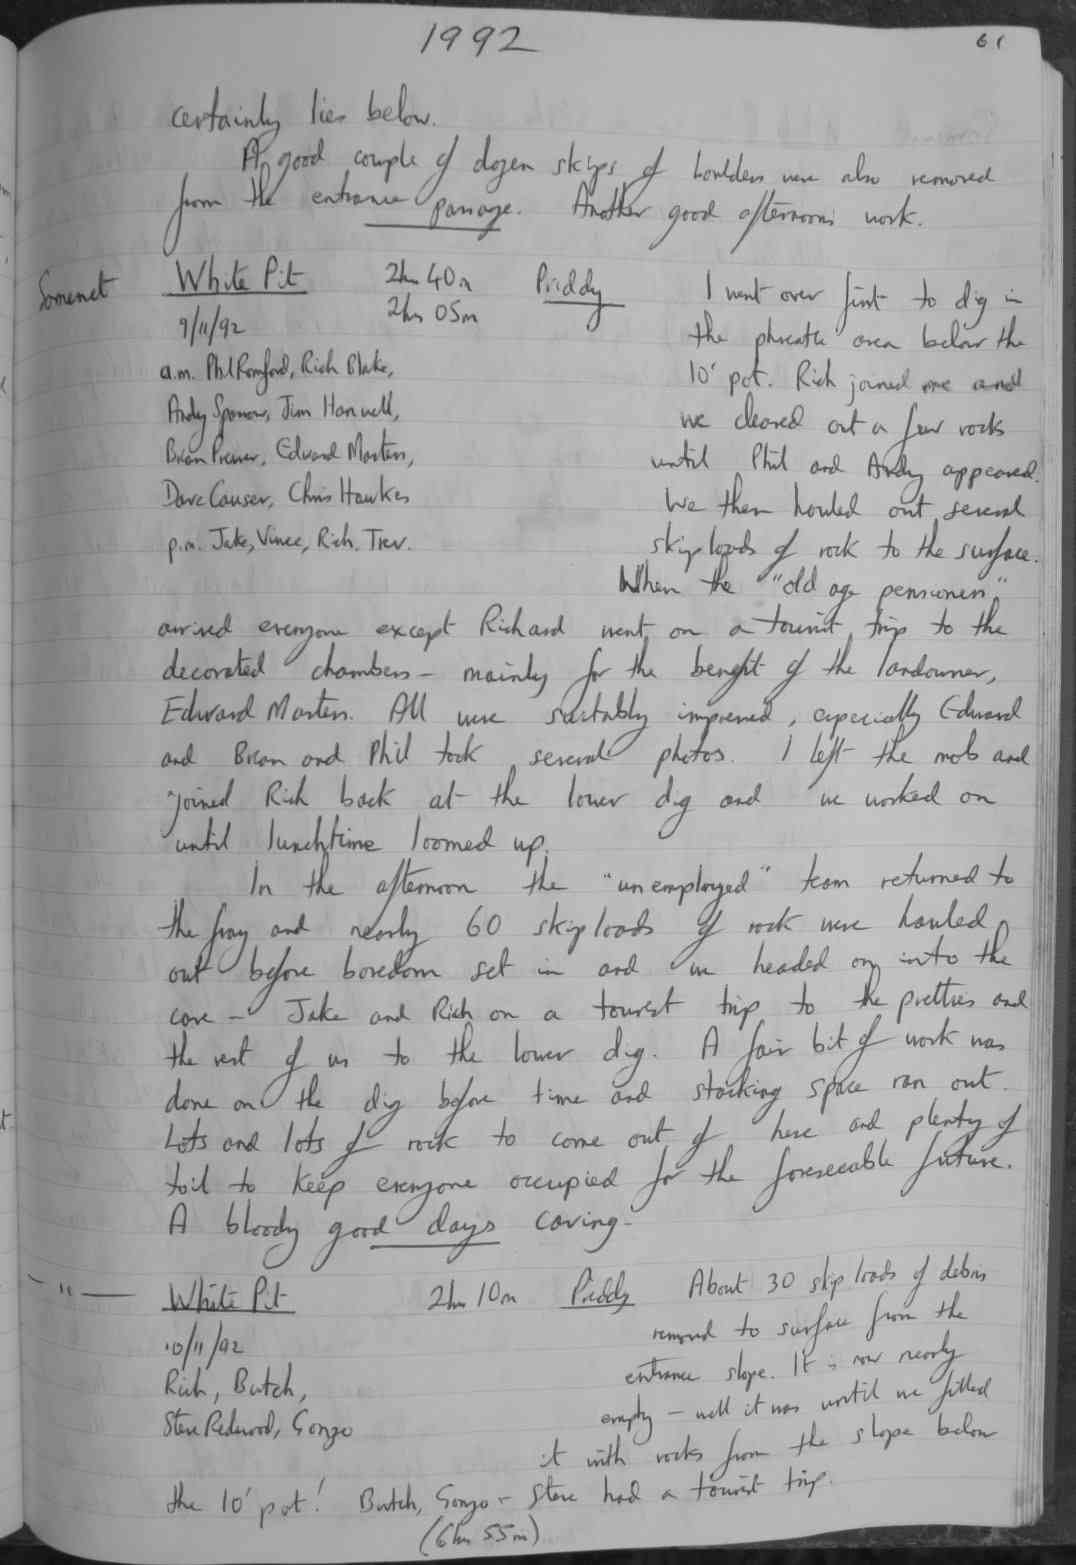 1992
61
certainly lies below.
A good couple of dozen skips of boulders were also removed
from the entrance passage. Another good afternoons work.
Somerset White Pit 2hrs 40m Priddy I went over first to dig in
9/11/92 2hrs 05m the phreatic area below the
a.m. Phil Romford, Rich Blake, 10' pot. Rich joined me and
Andy Sparrow, Jim Hanwell, we cleared out a few rocks
Brian Prewer, Edward Masters, until Phil and Andy appeared.
Dave Causer, Chris Hawkes We then hauled out several
p.m. Jake, Vince, Rich, Trev. skiploads of rock to the surface.
When the "old age pensioners"
arrived everyone except Richard went on a tourist trip to the
decorated chambers - mainly for the benefit of the landowner,
Edward Masters. All were suitably impressed, especially Edward
and Brian and Phil took several photos. I left the mob and
joined Rich back at the lower dig and we worked on
until lunchtime loomed up.
In the afternoon the "unemployed" team returned to
the fray and nearly 60 skiploads of rock were hauled
out before boredom set in and we headed on into the
cave - Jake and Rich on a tourist trip to the pretties and
the rest of us to the lower dig. A fair bit of work was
done on the dig before time and stacking space ran out.
Lots and lots of rock to come out of here and plenty of
toil to keep everyone occupied for the foreseeable future.
A bloody good days caving.
- " - White Pit 2hrs 10m Priddy About 30 skiploads of debris
10/11/92 removed to surface from the
Rich, Butch, entrance slope. It is now nearly
Steve Redwood, Gonzo empty - well it was until we filled
it with rocks from the slope below
the 10' pot! Butch, Gonzo - Steve had a tourist trip.
(6hrs 55m)